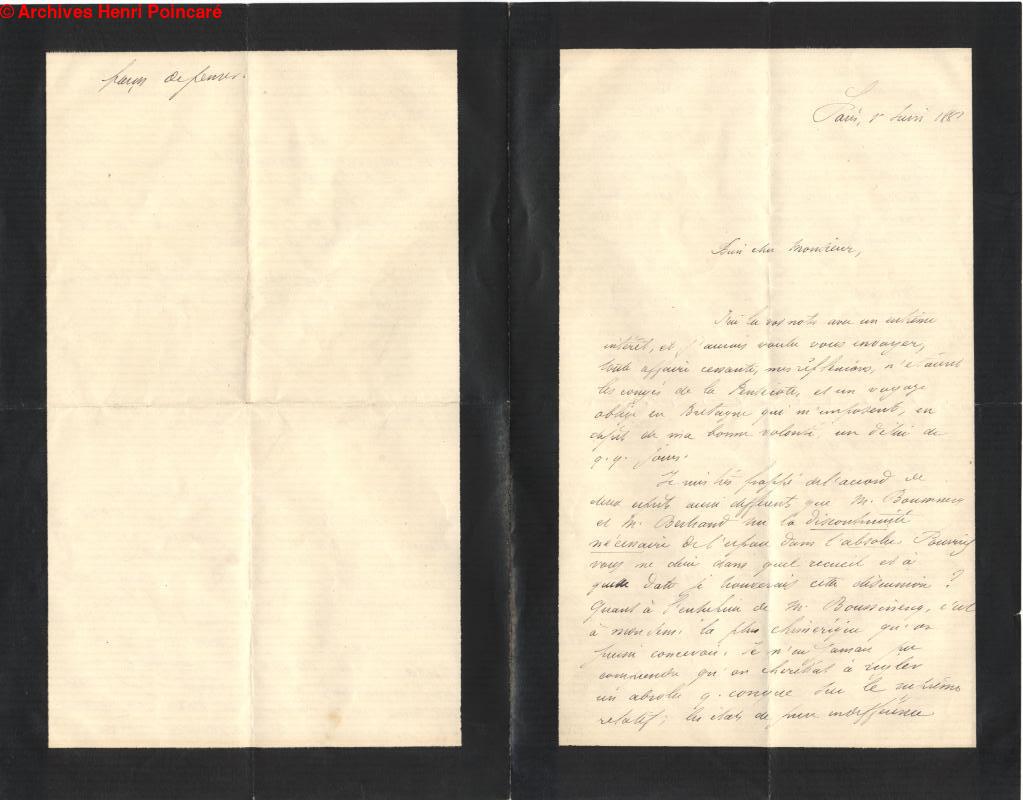 © Archives Henri Poincaré
façon de penser.
Paris, 1er Juin 188
Bien cher Monsieur,
J'ai lu vos notes avec un extrême
intérêt, et j'aurais voulu vous envoyer,
toute affaire cessante, mes réflexions, n'étaient
les congés de la Pentecôte, et un voyage
obligé en Bretagne qui m'imposent, en
dépit de ma bonne volonté, un délai de
q.q. jours.
Je suis très frappé de l'accord de
deux esprits aussi différents que M. Boussinesq
et M. Bertrand sur la discontinuité
nécessaire de l'espace dans l'absolu. Pourriez
vous me dire dans quel recueil et à
quelle date je trouverais cette discussion ?
Quant à l' de M. Boussinesq, c'est
à mon sens la plus chimérique qu'on
puisse concevoir. Je n'ai jamais pu
comprendre qu'on cherchât à
un absolu q. conque sur le
relatif ; les états de pure indifférence